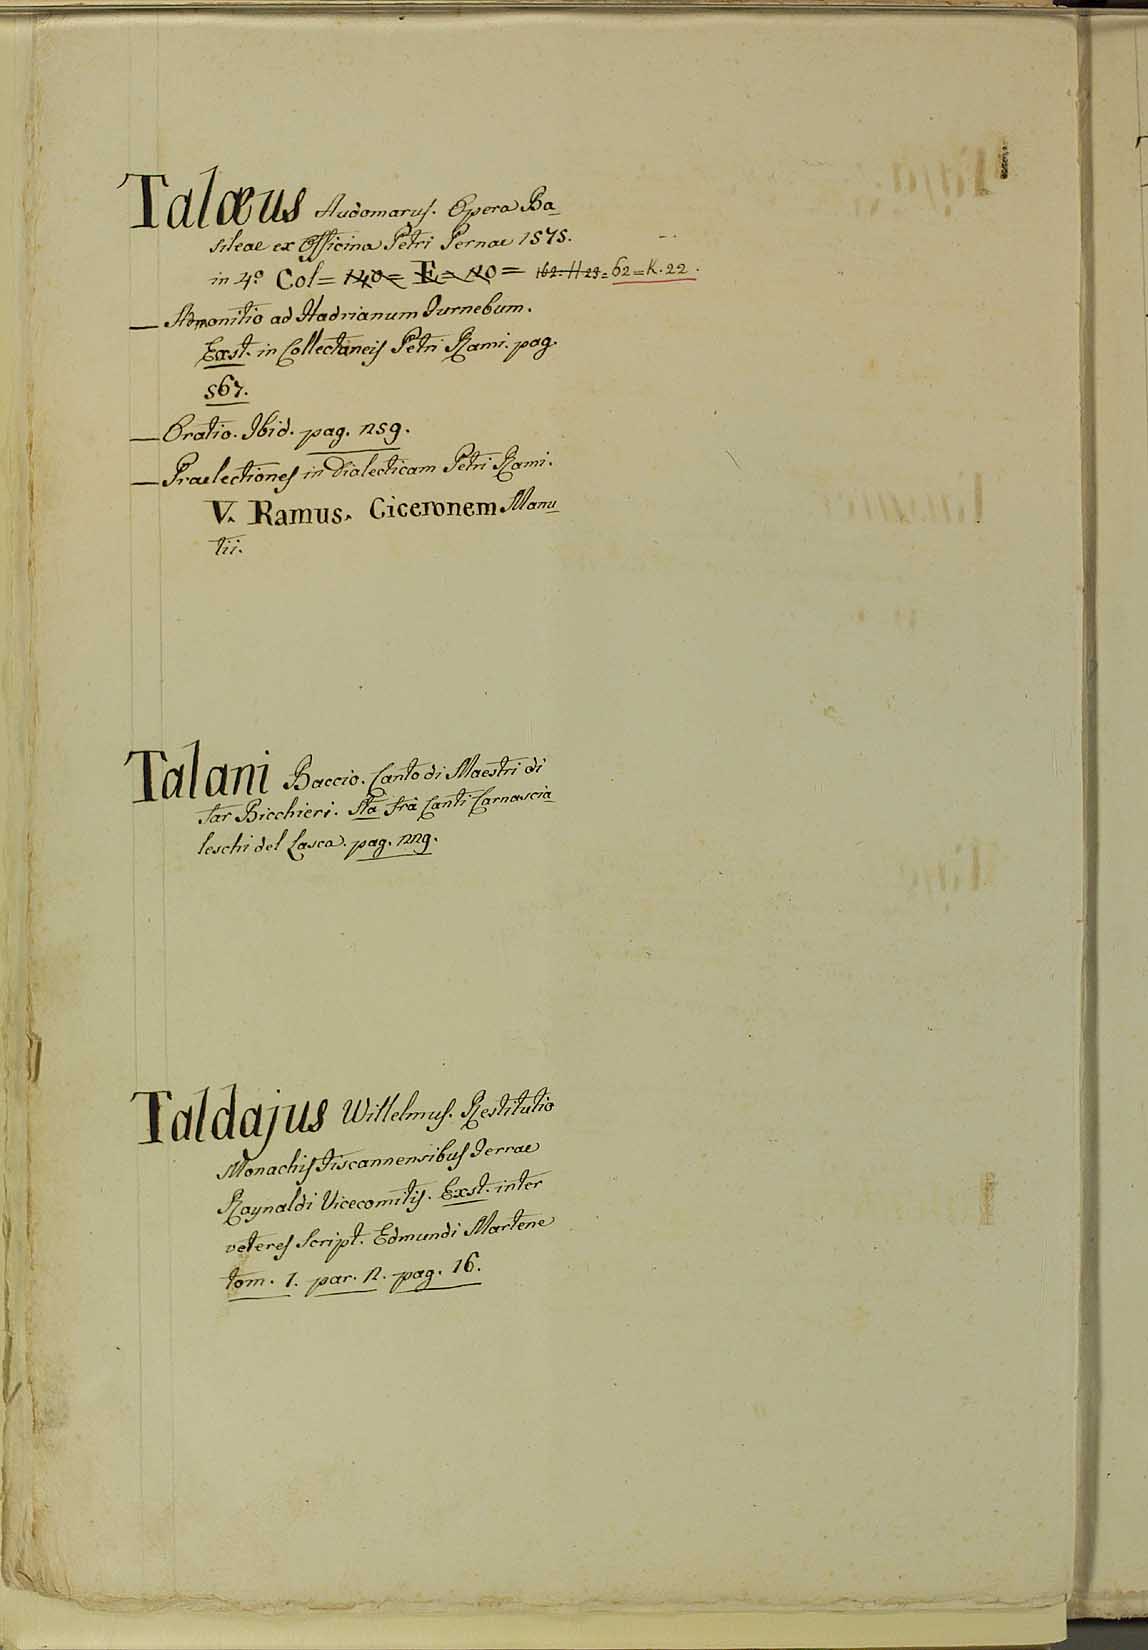 Talæus Audomarus. Opera Ba_
sileae ex Officina Petri Pernae 1575.
in 4º Col= 140= E= 10= 162. H 23= 62=K.22.
— Admonitio ad Hadrianum Turnebum.
Exst. in Collectaneis Petri Rami. pag.
567.
— Oratio. Ibid. pag. 259.
— Praelectiones in Dialecticam Petri Rami.
V. Ramus. Ciceronem Manu_
tii.
Talani Baccio. Canto di Maestri di
far Bicchieri. Sta frà Canti Carnascia_
leschi del Lasca. pag. 229.
Taldajus Willelmus. Restitutio
Monachis Fiscannensibus Terrae
Raynaldi Vicecomitis. Exst. inter
veteres Script. Edmundi Martene
tom. 1. par. 2. pag. 16.